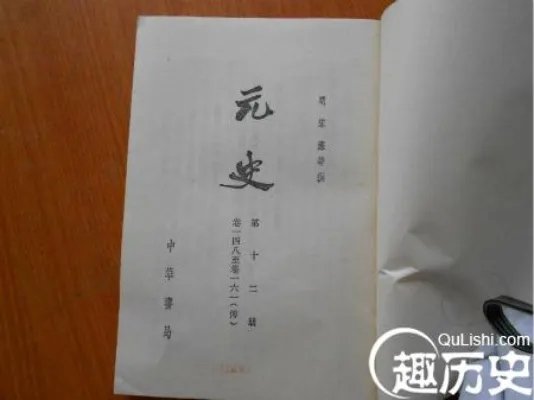 明宋濂等撰
元史
第十二册
卷一四八至卷一六一(傳)
中華書局
QuLishi.com
趣历史